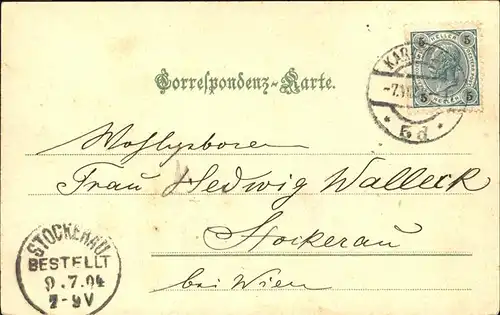 Correspondenz-Karte.
HELLER
5 5
5 5
KAR
-7.VI
* 5d *
Wohlgeboren
Frau Hedwig Walleck
Stockerau
bei Wien
STOCKERAU
BESTELLT
9.7.04
7-9V